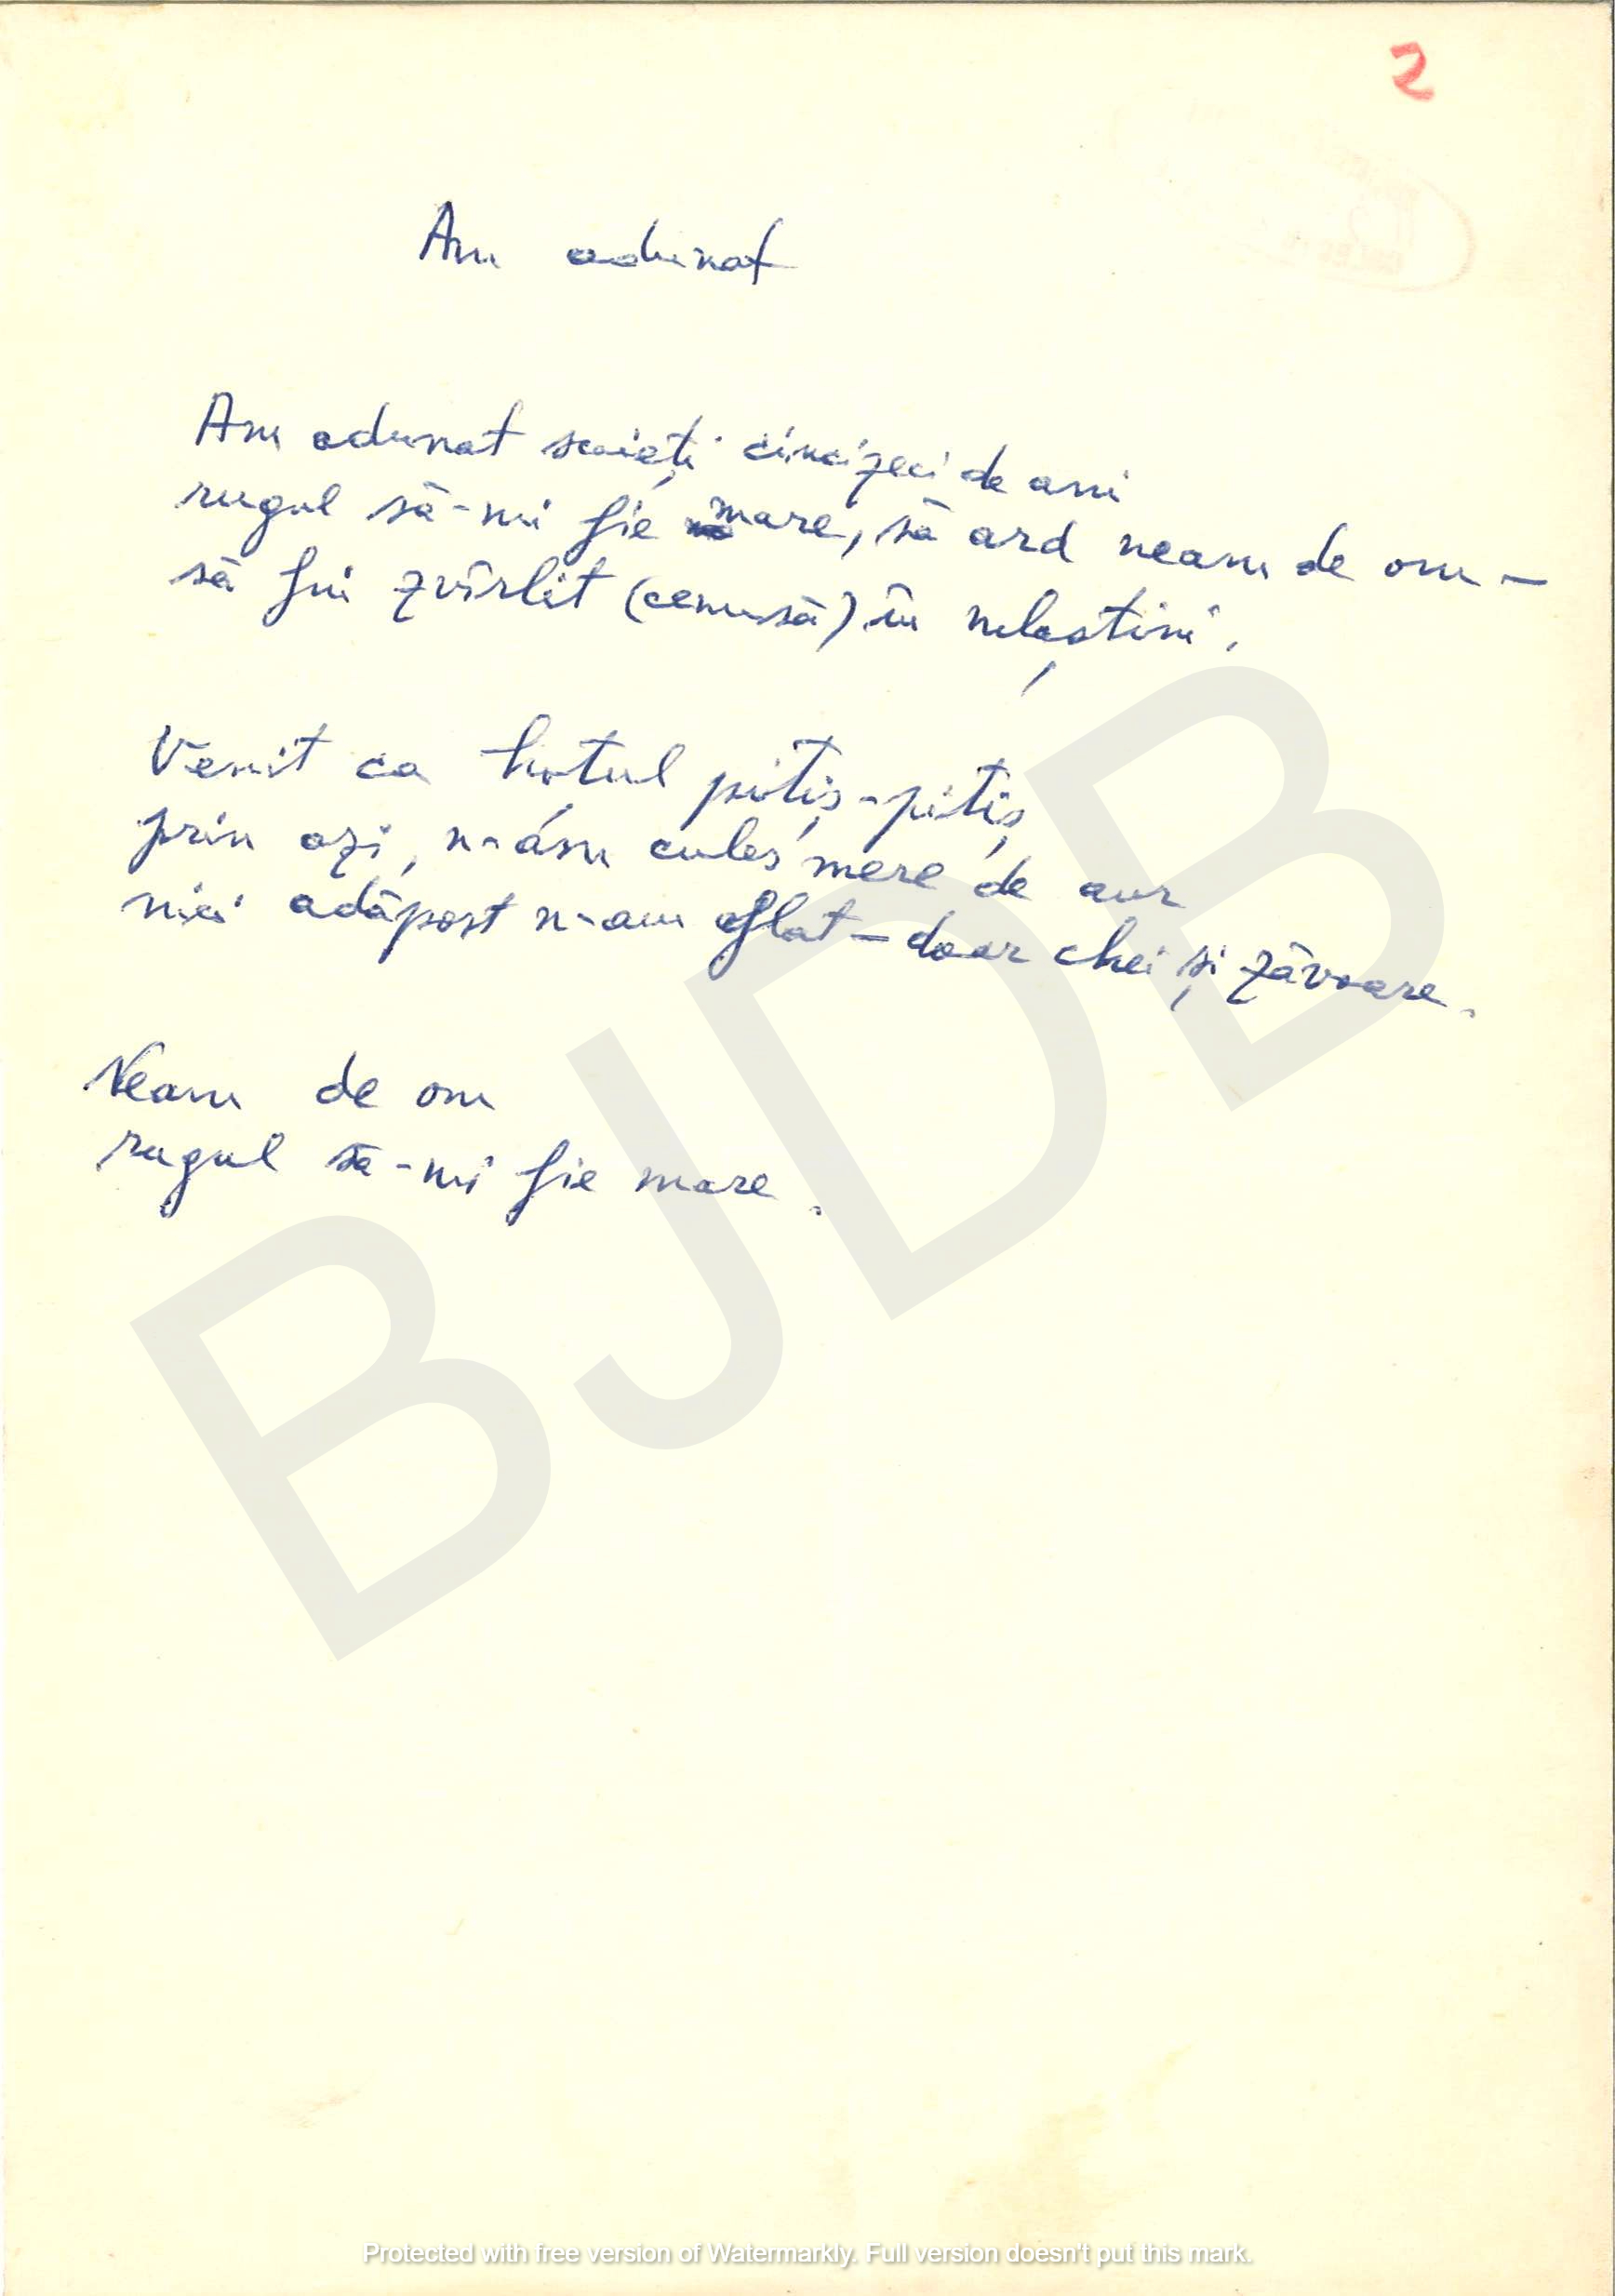 2
Am adunat
Am adunat scaieți cincizeci de ani
rugul să-mi fie mare, să ard neam de om —
să fiu zvîrlit (cenusă) în mlaștini.
Venit ca hoțul pitiș-pitiș
prin azi, n-am cules mere de aur
nici adăpost n-am aflat — doar chei și zăvoare.
Neam de om
rugul să-mi fie mare.
BJDB
Protected with free version of Watermarkly. Full version doesn't put this mark.